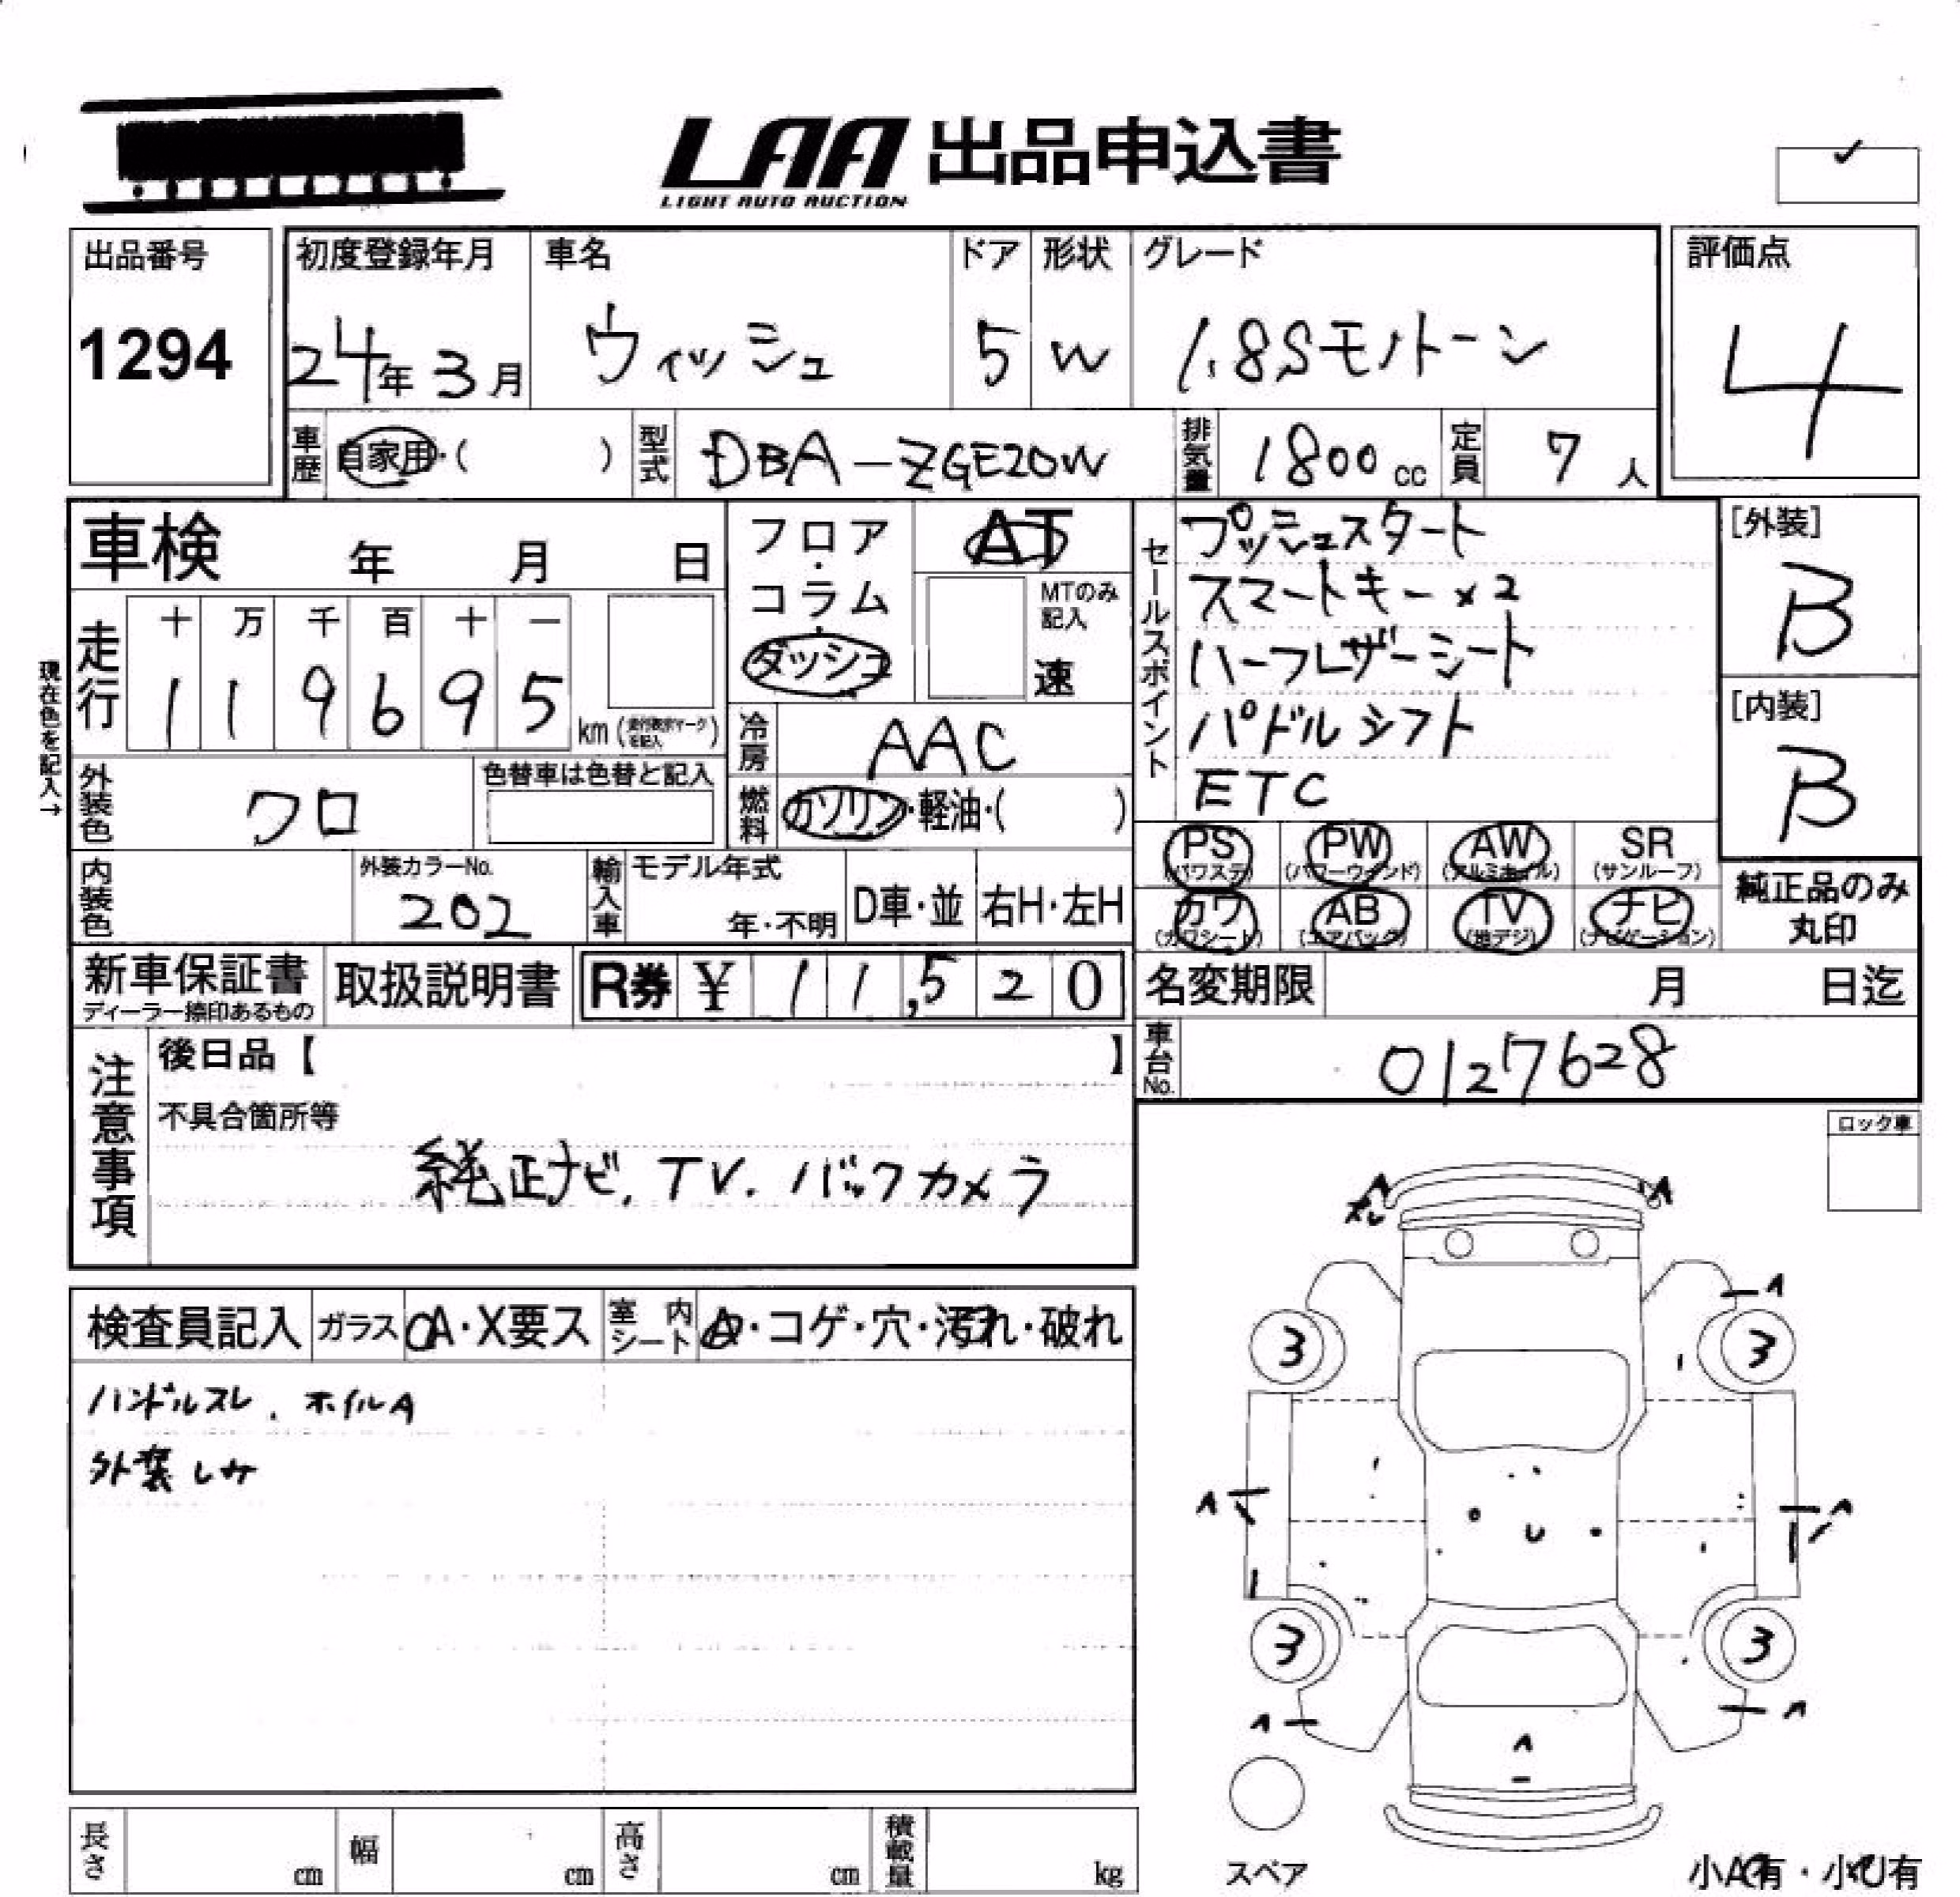 LAA 出品申込書
LIGHT AUTO AUCTION
出品番号
1294
初度登録年月 車名 ドア 形状 グレード
24年 3月 ウィッシュ 5 W 1.8Sモノトーン
評価点
4
車歴 自家用・( ) 型式 DBA-ZGE20W 排気量 1800cc 定員 7人
車検 年 月 日
フロア・コラム・ダッシュ
AT
MTのみ記入
速
セールスポイント
プッシュスタート
スマートキー×2
ハーフレザーシート
パドルシフト
ETC
[外装]
B
[内装]
B
現在色を記入→
走行 十 万 千 百 十 一
1 1 9 6 9 5 km
冷房 AAC
燃料 ガソリン・軽油・( )
外装色 クロ 色替車は色替と記入
内装色 外装カラーNo. 202
輸入車 モデル年式 年・不明 D車・並 右H・左H
PS (パワステ) PW (パワーウインド) AW (アルミホイル) SR (サンルーフ)
カワ (カワシート) AB (エアバック) TV (地デジ) ナビ (ナビゲーション)
純正品のみ
丸印
新車保証書 ディーラー捺印あるもの 取扱説明書 R券 ¥ 11,520
名変期限 月 日迄
車台No. 0127628
注意事項
後日品【 】
不具合箇所等
純正ナビ. TV. バックカメラ
ロック車
検査員記入 ガラス A・X要ス 室内シート ・コゲ・穴・汚れ・破れ
ハンドルスレ. ホイルA
外装シミ
A A
スレ
A
3 3
A A
U
3 3
A A
A
スペア
長さ cm 幅 cm 高さ cm 積載量 kg
小A有・小U有